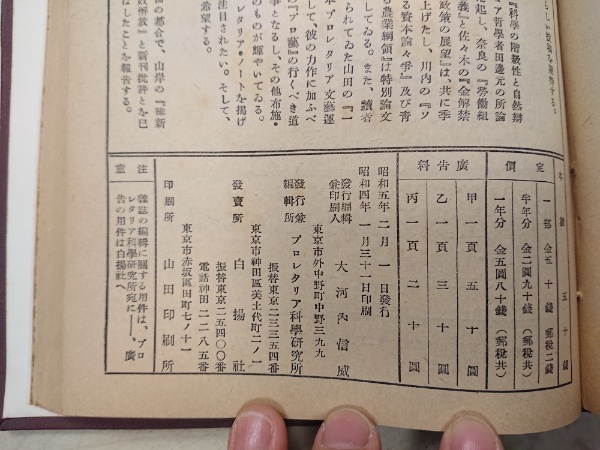 『科學の階級性と自然辯
ア哲學者田邊元の所論
起し、奈良の『勞働組
義』と佐々木の『金解禁
政策の展望』は、共に季
上げたし、川内の『ソ
る資本論々爭』及び靑
農業綱領』は特別論文
してゐる。また、讀者
られてゐた山田の『一
本プロレタリア文藝運
して、彼の力作に加ふべ
の『プロ藝』の行くべき道
事となるし、その他布施・
のものが輝やいてゐる。
レタリア・ノートを揭げ
注目されたい。そして、
希望する。
面の都合で、山岸の『維新
放』と新刊批評とを已
はしたことを報告する。
五十錢
定價
一部 金五十錢(郵稅二錢
半年分 金二圓九十錢(郵稅共)
一年分 金五圓八十錢(郵稅共)
廣告料
甲一頁 五十圓
乙一頁 三十圓
丙一頁 二十圓
昭和五年二月一日發行
昭和四年一月三十一日印刷
發行編輯兼印刷人 大河內信威
東京市外中野町中野三九九
發行兼編輯所 プロレタリア科學硏究所
振替東京二三三五四番
東京市神田區美土代町二ノ一
發賣所 白揚社
振替東京二五四〇〇番
電話神田二二八五番
東京市赤坂區田町七ノ十一
印刷所 山田印刷所
注意
雜誌の編輯に關する用件は、プロ
レタリア科學硏究所宛に――、廣
告の用件は白揚社へ